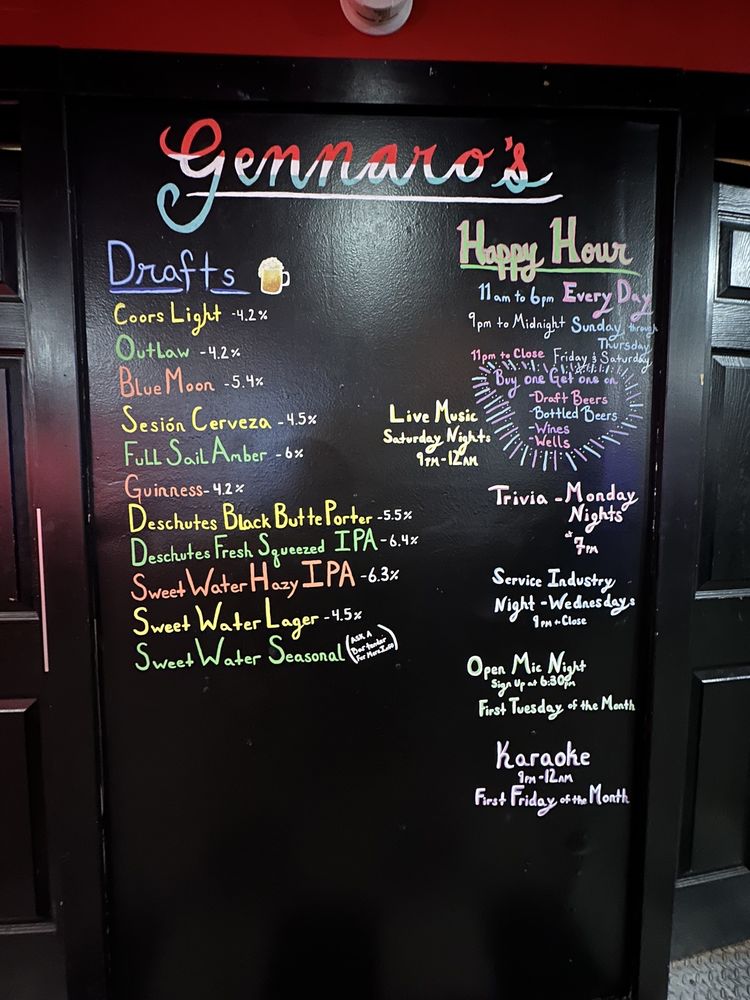 Gennaro's
Drafts
Coors Light -4.2%
Outlaw -4.2%
Blue Moon -5.4%
Sesión Cerveza -4.5%
Full Sail Amber -6%
Guinness-4.2%
Deschutes Black Butte Porter -5.5%
Deschutes Fresh Squeezed IPA -6.4%
Sweet Water Hazy IPA -6.3%
Sweet Water Lager -4.5%
Sweet Water Seasonal
(Ask A
Bartender
For More Info)
Live Music
Saturday Nights
9pm-12am
Happy Hour
11am to 6pm Every Day
9pm to Midnight Sunday through
Thursday
11pm to Close Friday & Saturday
Buy one Get one on
-Draft Beers
-Bottled Beers
-Wines
-Wells
Trivia -Monday
Nights
at
7pm
Service Industry
Night -Wednesdays
9pm-Close
Open Mic Night
Sign Up at 6:30pm
First Tuesday of the Month
Karaoke
9pm-12am
First Friday of the Month